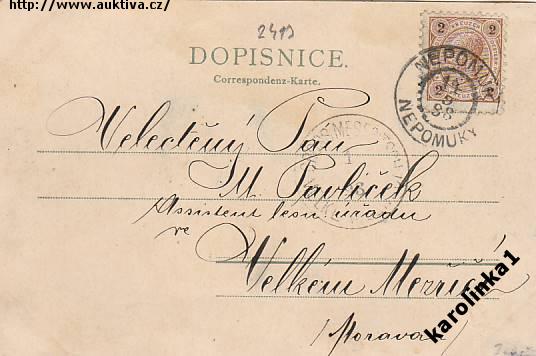 http://www.auktiva.cz/
2419
DOPISNICE.
Correspondenz-Karte.
2 KREUZER 2
NEPOMUK
NEPOMUKY
Velectěný Pan
M. Pavlíček
Assistent lesn. úřadu
ve
Velkém Meziříčí
(Morava)
karolinka1